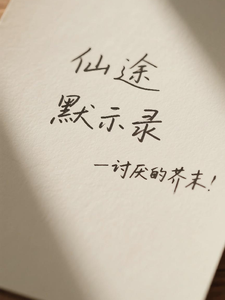 仙途
默示录
一讨厌的芥末!